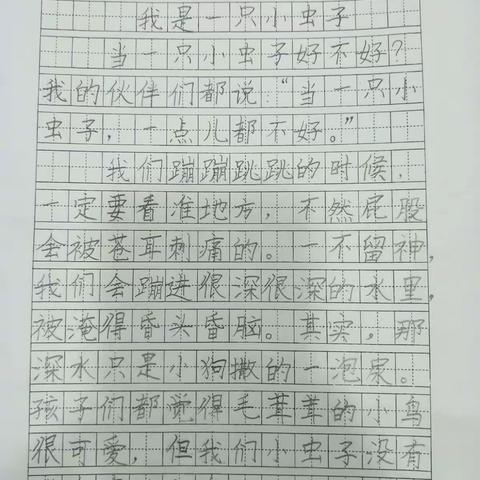 我是一只小虫子
当一只小虫子好不好？
我的伙伴们都说：“当一只小
虫子，一点儿都不好。”
我们蹦蹦跳跳的时候，
一定要看准地方，不然屁股
会被苍耳刺痛的。一不留神，
我们会蹦进很深很深的水里，
被淹得昏头昏脑。其实，那
深水只是小狗撒的一泡尿。
孩子们都觉得毛茸茸的小鸟
很可爱，但我们小虫子没有